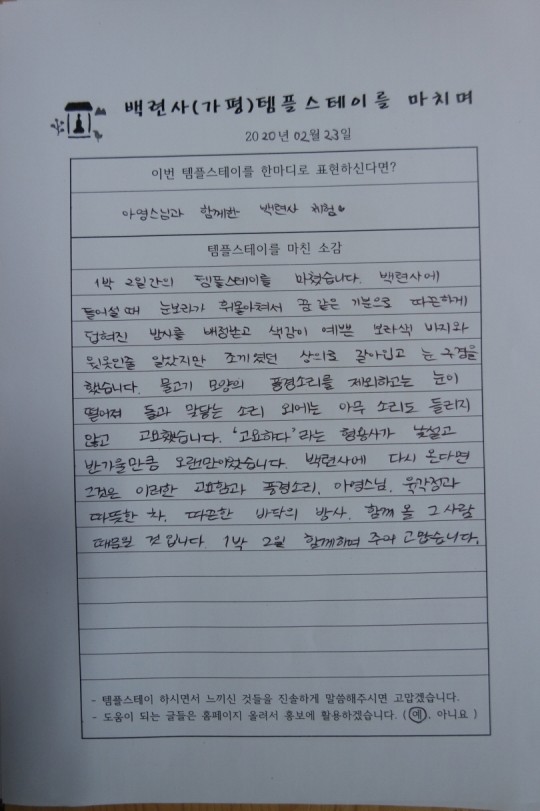 백련사(가평)템플스테이를 마치며
2020년 02월 23일
이번 템플스테이를 한마디로 표현하신다면?
아영스님과 함께한 백련사 체험
템플스테이를 마친 소감
1박 2일간의 템플스테이를 마쳤습니다. 백련사에
들어설 때 눈보라가 휘몰아쳐서 꿈 같은 기분으로 따끈하게
덥혀진 방사를 배정받고 색감이 예쁜 보라색 바지와
윗옷인줄 알았지만 조끼였던 상의로 갈아입고 눈 구경을
했습니다. 물고기 모양의 풍경소리를 제외하고는 눈이
떨어져 돌과 맞닿는 소리 외에는 아무 소리도 들리지
않고 고요했습니다. '고요하다'라는 형용사가 낯설고
반가울만큼 오랜만이었습니다. 백련사에 다시 온다면
그것은 이러한 고요함과 풍경소리, 아영스님, 묵각정과
따뜻한 차, 따끈한 바닥의 방사, 함께 올 그 사람
때문일 것입니다. 1박 2일 함께하며 주어 고맙습니다.
- 템플스테이 하시면서 느끼신 것들을 진솔하게 말씀해주시면 고맙겠습니다.
- 도움이 되는 글들은 홈페이지 올려서 홍보에 활용하겠습니다. (예, 아니요 )